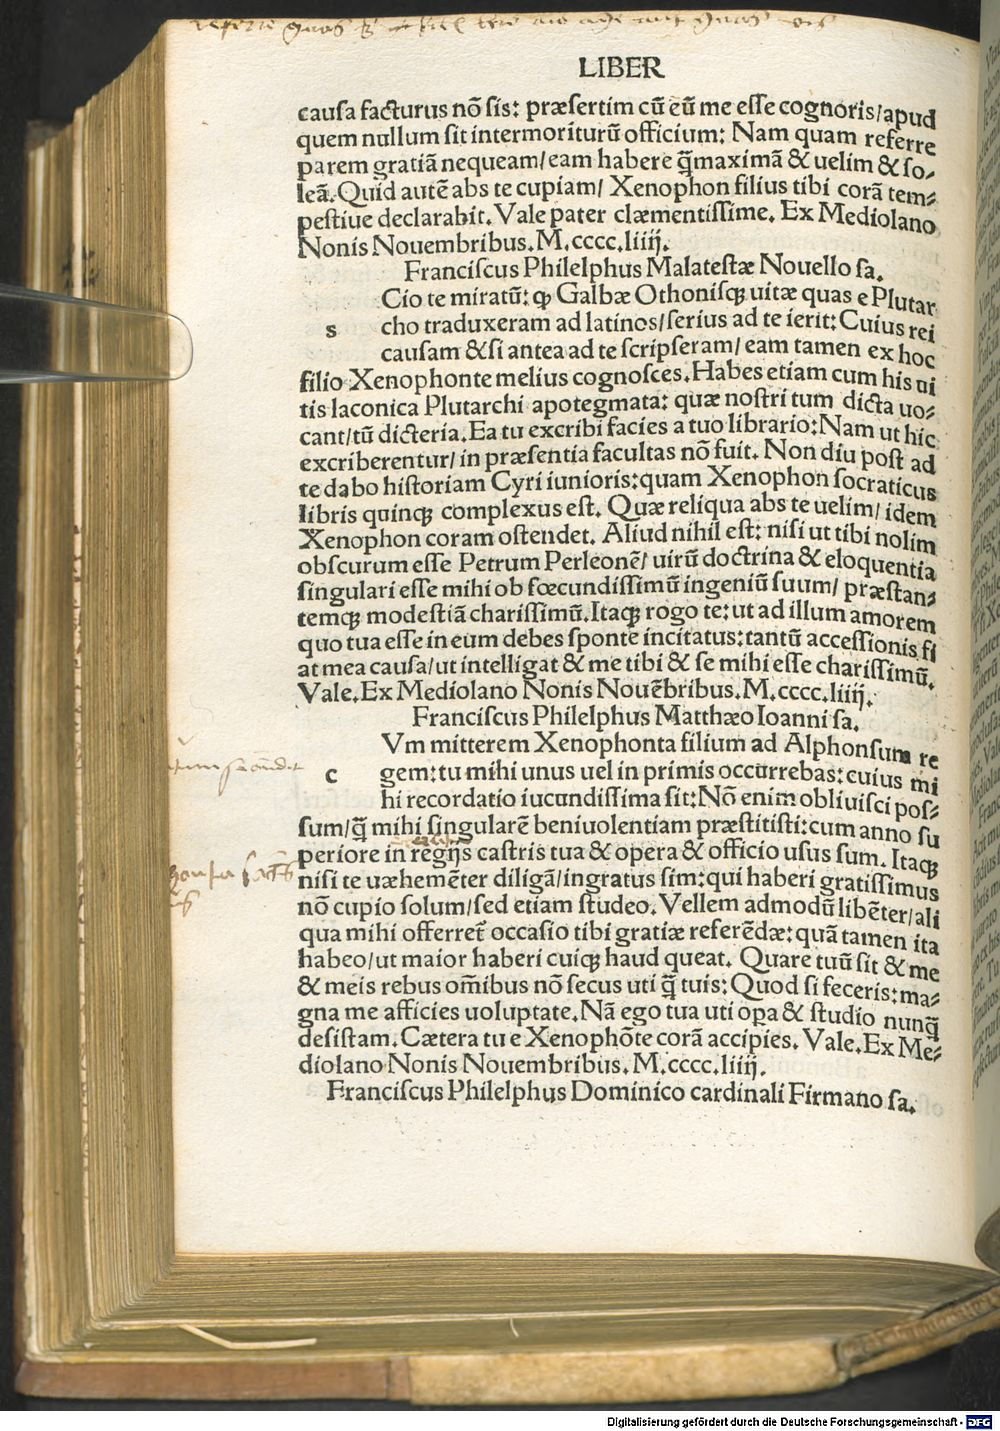 LIBER
cauſa facturus nõ ſis: præſertim cũ eũ me eſſe cognoris/apud
quem nullum ſit intermoriturũ officium: Nam quam referre
parem gratiã nequeam/eam habere q̃maximã & uelim & ſo-
leã. Quid autẽ abs te cupiam/ Xenophon filius tibi corã tem-
peſtiue declarabit. Vale pater clæmentiſſime. Ex Mediolano
Nonis Nouembribus. M.cccc.liiij.
Franciſcus Philelphus Malateſtæ Nouello ſa.
Cio te miratũ: ꝙ Galbæ Othoniſqꝫ uitæ quas e Plutar
s cho traduxeram ad latinos/ſerius ad te ierit: Cuius rei
cauſam &ſi antea ad te ſcripſeram/ eam tamen ex hoc
filio Xenophonte melius cognoſces. Habes etiam cum his ui
tis laconica Plutarchi apotegmata: quæ noſtri tum dicta uo-
cant/tũ dicteria. Ea tu excribi facies a tuo librario: Nam ut hic
excriberentur/ in præſentia facultas nõ fuit. Non diu poſt ad
te dabo hiſtoriam Cyri iunioris: quam Xenophon ſocraticus
libris quinqꝫ complexus eſt. Quæ reliqua abs te uelim/ idem
Xenophon coram oſtendet. Aliud nihil eſt: niſi ut tibi nolim
obſcurum eſſe Petrum Perleonẽ/ uirũ doctrina & eloquentia
ſingulari eſſe mihi ob fœcundiſſimũ ingeniũ ſuum/ præſtan-
temqꝫ modeſtiã chariſſimũ. Itaqꝫ rogo te: ut ad illum amorem
quo tua eſſe in eum debes ſponte incitatus: tantũ acceſſionis fi
at mea cauſa/ut intelligat & me tibi & ſe mihi eſſe chariſſimũ.
Vale. Ex Mediolano Nonis Nouẽbribus. M.cccc.liiij.
Franciſcus Philelphus Matthæo Ioanni ſa.
Vm mitterem Xenophonta filium ad Alphonſum re
c gem: tu mihi unus uel in primis occurrebas: cuius mi
hi recordatio iucundiſſima ſit: Nõ enim obliuiſci poſ-
ſum/q̃ mihi ſingularẽ beniuolentiam præſtitiſti: cum anno ſu
periore in regijs caſtris tua & opera & officio uſus ſum. Itaqꝫ
niſi te uæhemẽter diligã/ingratus ſim: qui haberi gratiſſimus
nõ cupio ſolum/ſed etiam ſtudeo. Vellem admodũ libẽter/ali
qua mihi offerret̃ occaſio tibi gratiæ referẽdæ: quã tamen ita
habeo/ut maior haberi cuiqꝫ haud queat. Quare tuũ ſit & me
& meis rebus om̃ibus nõ ſecus uti q̃ tuis: Quod ſi feceris: ma-
gna me afficies uoluptate. Nã ego tua uti opa & ſtudio nunq̃
deſiſtam. Cætera tu e Xenophõte corã accipies. Vale. Ex Me-
diolano Nonis Nouembribus. M.cccc.liiij.
Franciſcus Philelphus Dominico cardinali Firmano ſa.
Digitalisierung gefördert durch die Deutsche Forschungsgemeinschaft - DFG